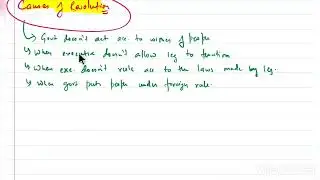 Causes of Revolution
→ Govt doesn't act acc. to wishes of people
↳ When executive doesn't allow leg to function
↳ When exe. doesn't rule acc to the laws made by leg.
↳ When govt puts people under foreign rule.